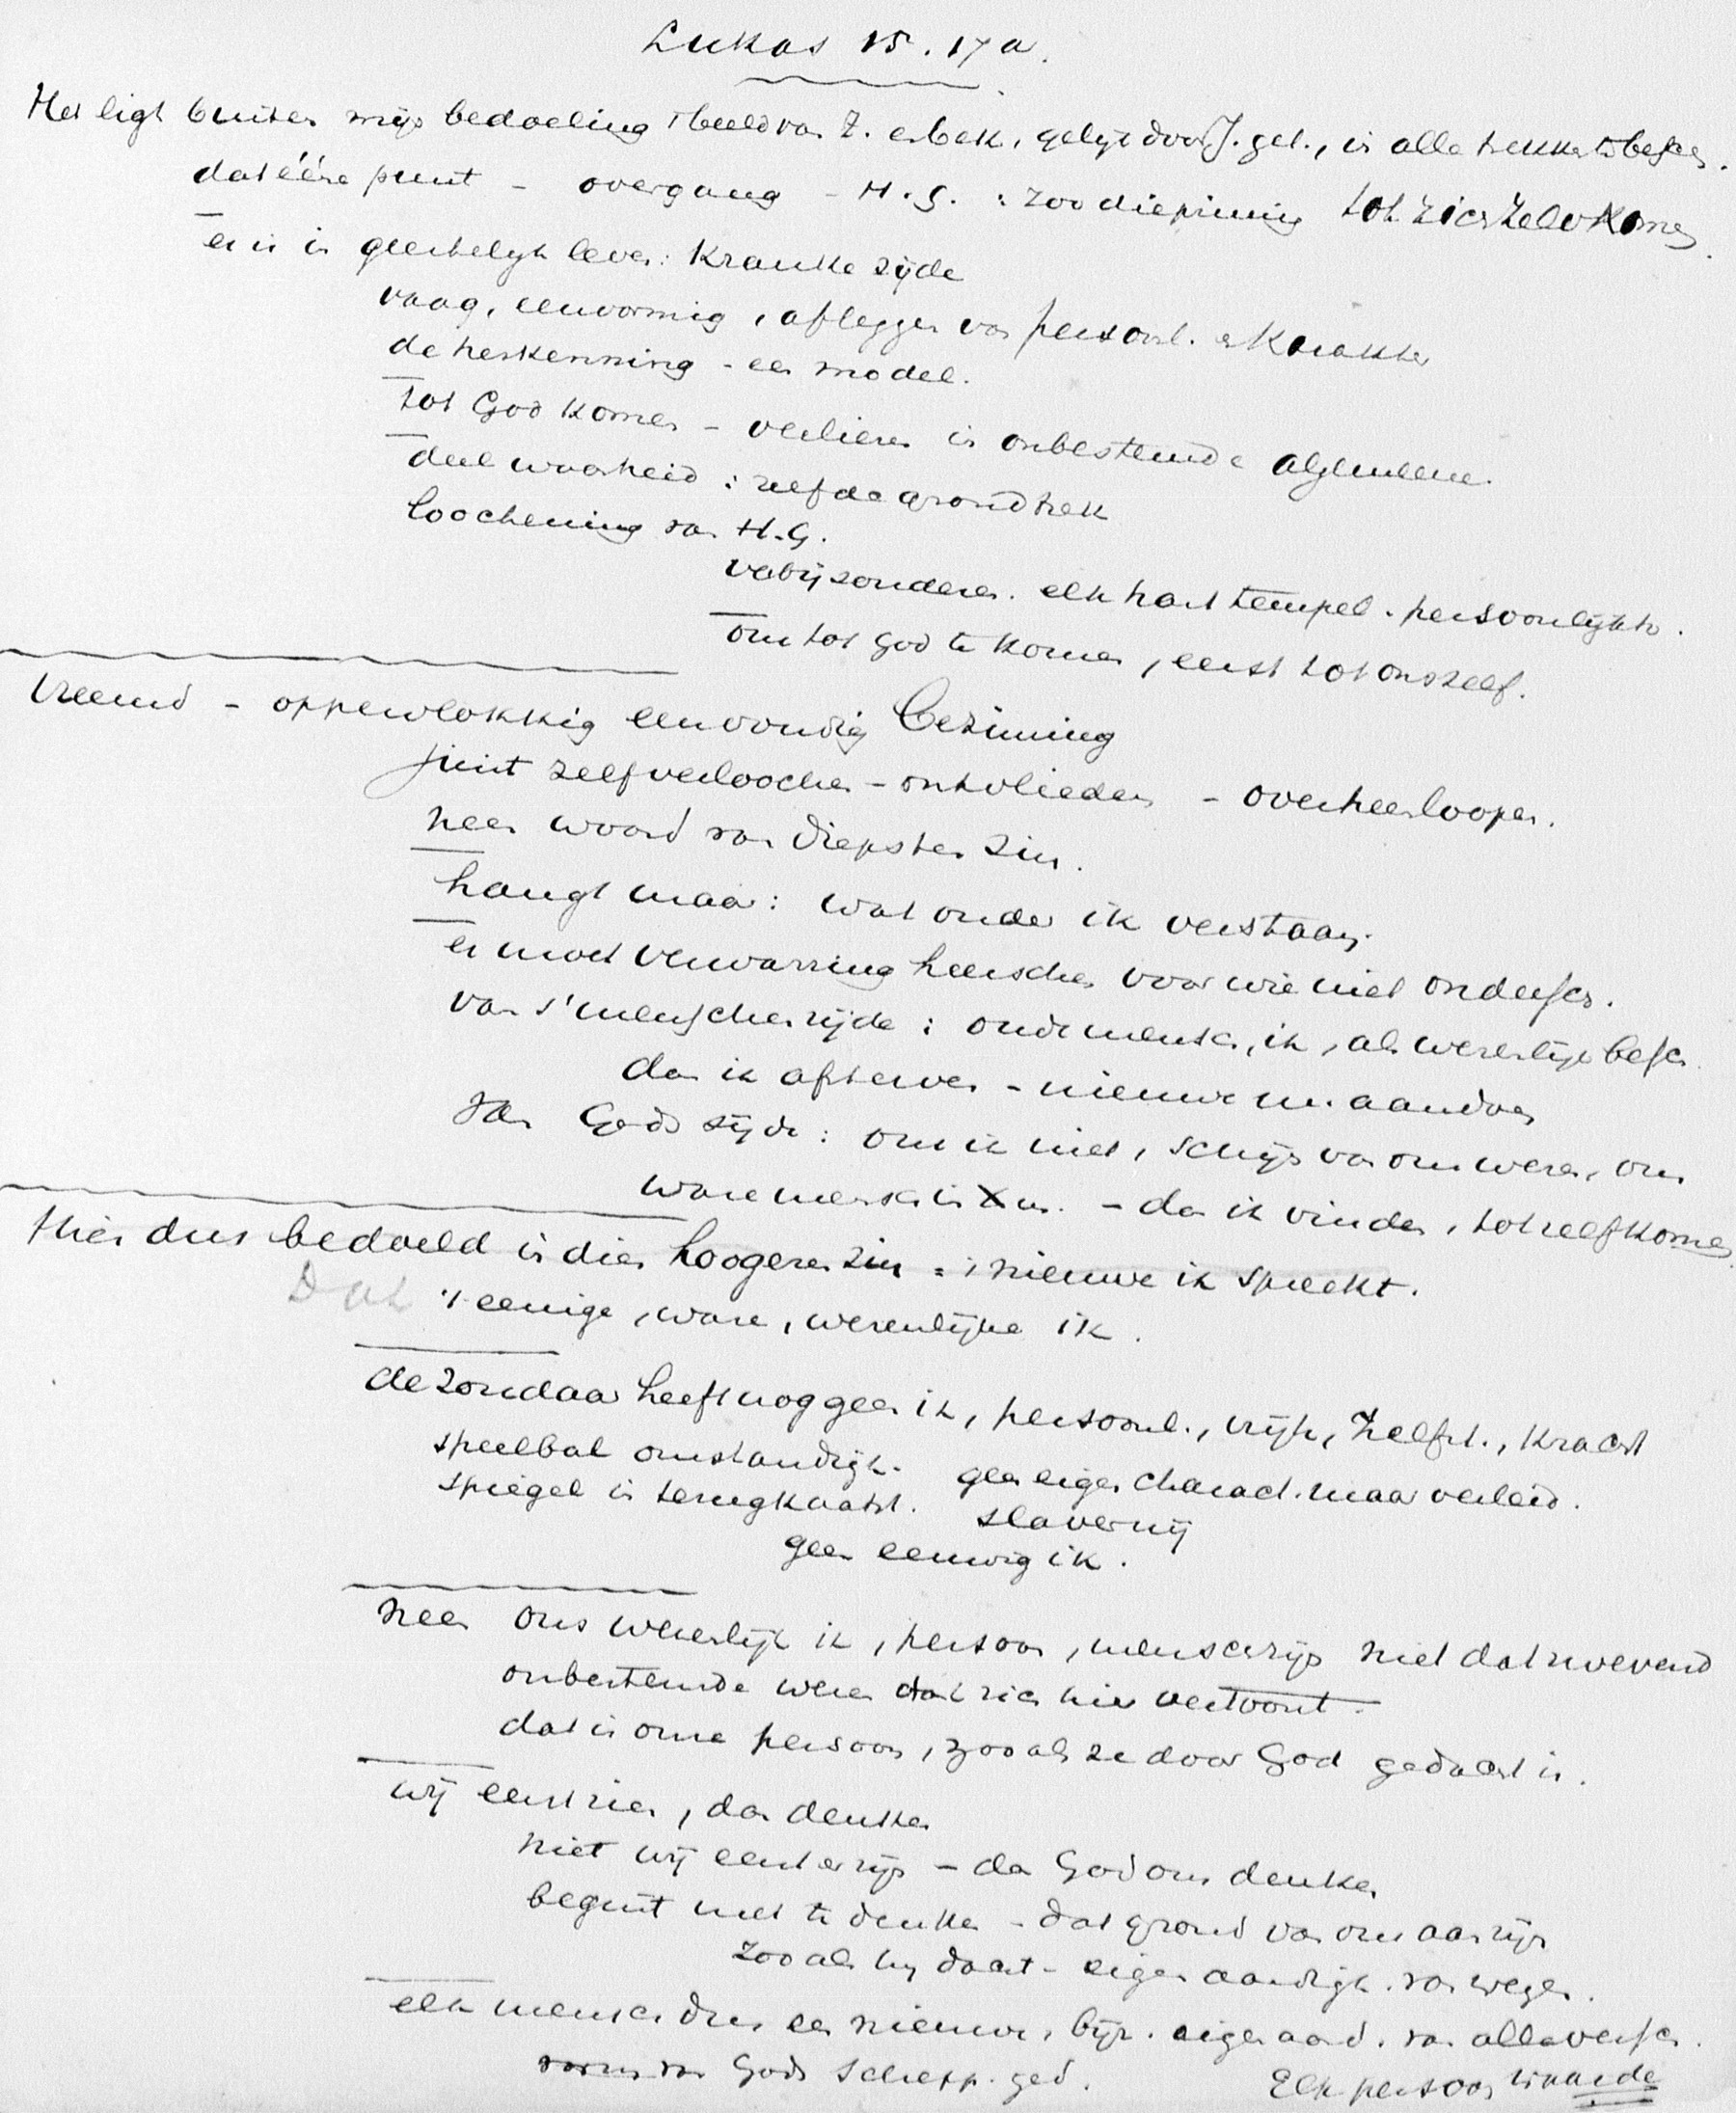 Lukas 15. 17a.
Het ligt buiten mijn bedoeling 't beeld van Z. en bek., gelijk door J. get., in alle trekken te besch.
dat ééne punt - overgang - H.S. : zoo diepzinnig tot zich zelv komen.
er is in geestelijk leven : kranke zijde
vaag, eenvormig, afleggen van persoonl. en karakter
de herkenning - een model.
tot God komen - verliezen in onbestemde algemeene.
deel waarheid : zelfde grondtrek
loochening van H.G.
verbijzonderen. elk hart tempel. persoonlijkh.
om tot God te komen, eerst tot onszelf.
Vreemd - oppervlakkig eenvoudig bezinning
juist zelfverloochen - ontvlieden - overheerloopen.
neen woord van diepsten zin.
hangt maar : wat onder ik verstaan.
er moet verwarring heerschen voor wie niet ondersch.
van s'menschen zijde : oude mensch, ik, als wezenlijk besch.
dan ik afsterven - nieuwe m. aandoen
van Gods zijde : ons ik niet, schijn van ons wezen, ons
ware mensch in X us. - dan ik vinden, tot zelf komen.
Hier dus bedoeld in dien hoogeren zin = 't nieuwe ik spreekt.
Dat 't eenige, ware, wezenlijke ik.
de zondaar heeft nog geen ik, persoonl., vrijh., zelfst., kracht
speelbal omstandigh. geen eigen charact. maar verleid.
spiegel in terugkaatst. slavernij
geen eeuwig ik.
neen ons wezenlijk ik, persoon, menschzijn niet dat zwevend
onbestemde wezen dat zich hier vertoont -
dat is onze persoon, zooals ze door God gedacht is.
wij eerst zien, dan denken
niet wij eerst er zijn - dan God ons denken
begint met te denken - dat grond van ons aanzijn
zooals hij dacht - eigenaardigh. van wegen.
elk mensch dus een nieuwe, bijz. eigenaard. van alle versch.
vorm van Gods schepp. ged. Elk persoon waarde